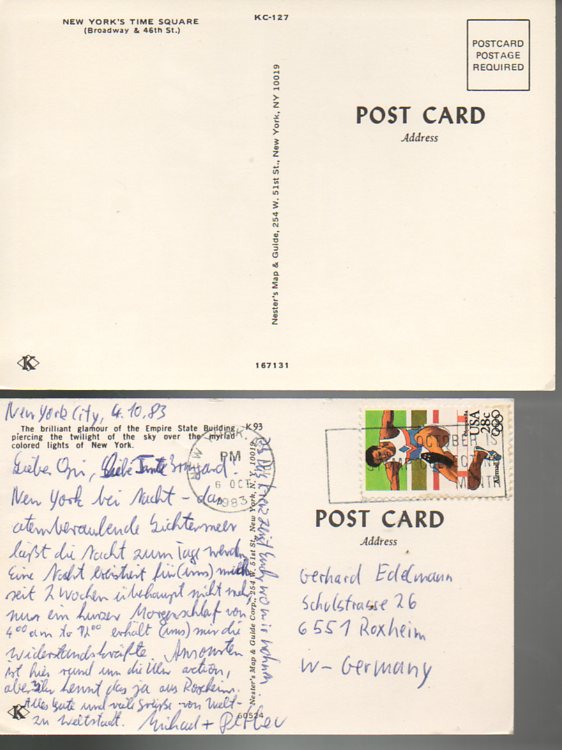 NEW YORK'S TIME SQUARE
(Broadway & 46th St.)
KC-127
POSTCARD
POSTAGE
REQUIRED
POST CARD
Address
Nester's Map & Guide, 254 W. 51st St., New York, NY 10019
K
167131
New York City, 4.10.83
The brilliant glamour of the Empire State Building K93
piercing the twilight of the sky over the myriad
colored lights of New York.
Lieber Opi, liebe Tante Irmgard!
New York bei Nacht – das
atemberaubende Lichtermeer
läßt die Nacht zum Tag werden
Eine Nacht existiert für (uns)
seit 2 Wochen überhaupt nicht mehr
nur ein kurzer Morgenschlaf von
4⁰⁰ am to 12⁰⁰ erhält (uns) nur die
Widerstandskräfte. Ansonsten
ist hier rund um die Uhr action,
aber Ihr kennt das ja aus Roxheim.
Alles Gute und viele Grüße von Welt-
zu Weltstadt. Michael +
K
60524
Nester's Map & Guide Corp., 254 W. 51st St., New York, N.Y. 10019
NEW YORK, N.Y.
PM
6 OCT
1983
OCTOBER IS
STAMP COLLECTING
MONTH
USA
28c
Airmail
POST CARD
Address
Gerhard Edelmann
Schulstrasse 26
6551 Roxheim
W-Germany